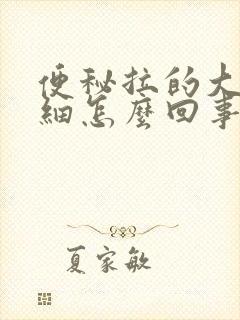 便秘拉的大
細怎麼回事
夏家敏